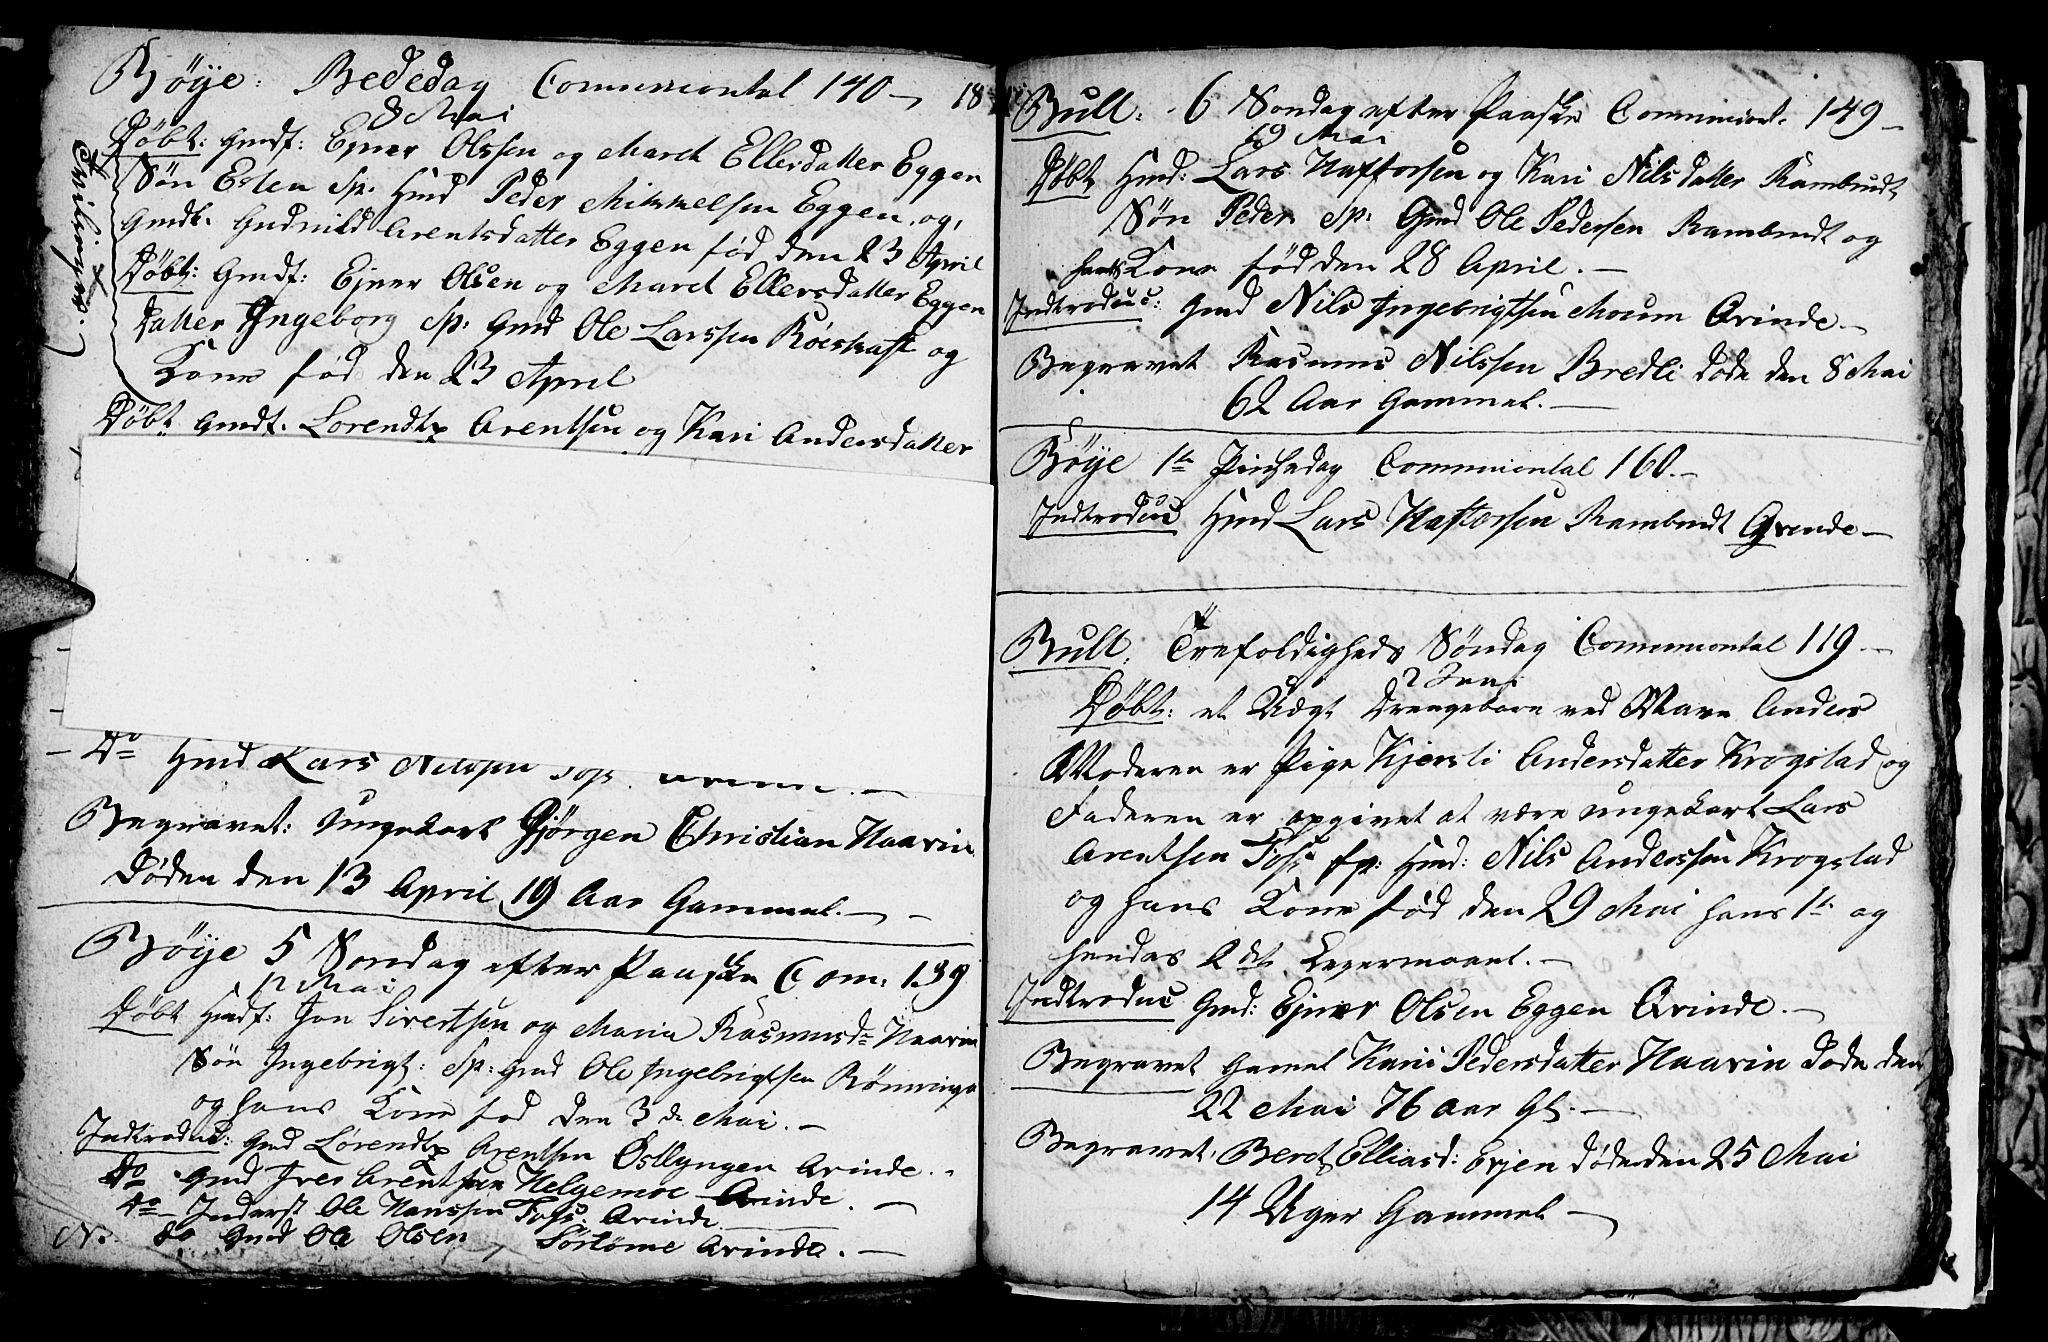 Böÿe: Bededag Communiontal 140 18
8 Mai
Döbt: Gmdf: Ejner Olssen og Maret Ellersdatter Eggen
Søn Esten Sp. Hmd Peder Mikkelsen Eggen, og,
Gmdt. Gudnild Arentsdatter Eggen fød den 23 April
Döbt: Gmdf: Ejner Olsen og Maret Ellersdatter Eggen
Datter Ingeborg Sp: Gmd Ole Larssen Röiskaft og
Kone fød den 23 April
Tvilinger
Döbt Gmdt. Lorendtz Arentsen og Kari Andersdatter
Do Hmd Lars Nilssen Foss
Begravet: Ungekarl Gjörgen Christian Haavin
Døden den 13 April 19 Aar Gammel.
Böÿe 5 Søndag efter Paaske Com: 139
12 Mai
Döbt Hmdf: Jon Sivertsen og Maria Rasmusdr Haavin
Søn Ingebrigt: Sp: Gmd Ole Ingebrigtsen Rönninge
og hans Kone fød den 3de Mai.
Indtroduc: Gmd Lørendtz Arentsen Östlyngen Qvinde.
Do Gmd Iver Arentsen Helgemoe Qvinde.
Do Inderst Ole Hanssen Foss: Qvinde
N. Do Gmd Ole Olsen Sörtömme Qvinde.
Bull: 6 Søndag efter Paaske Communiont. 149
19 Mai
Döbt Hmd: Lars Haftorsen og Kari Nilsdatter Rambudt
Søn Peder Sp: Gmd Ole Pedersen Rambudt og
hans Kone fød den 28 April.
Indtroduc: Gmd Nils Ingebrigtsen Moum Qvinde.
Begravet Rasmus Nilssen Bredli døde den 8 Mai
62 Aar Gammel.
Böÿe 1te Pinsedag Communiontal 160.
Indtroduc Hmd Lars Haftorsen Rambudt Qvinde
Bull: Trefoldigheds Søndag Communiontal 119.
2 Juni
Döbt: et Uægt Drengebarn ved Navn Anders
Moderen er Pige Kjersti Andersdatter Krogstad og
Faderen er opgivet at være Ungekarl Lars
Arentsen Foss Sp: Hmd: Nils Anderssen Krogstad
og hans Kone fød den 29 Mai hans 1te og
hendes 2det Legermaael.
Indtroduc Gmd: Ejner Olsen Eggen Qvinde.
Begravet Gamel Kari Pedersdatter Haavin døde den
22 Mai 76 aar Gl.
Begravet: Beret Elliasd: Evjen døde den 25 Mai
14 Uger Gammel